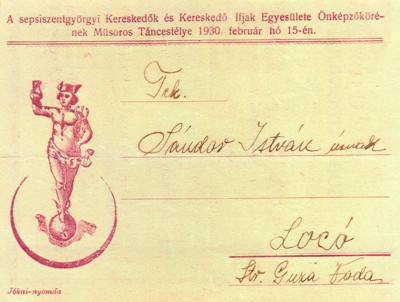 A sepsiszentgyörgyi Kereskedők és Kereskedő Ifjak Egyesülete Önképzőköré-
nek Műsoros Táncestélye 1930. február hó 15-én.
Tek.
Sándor István úrnak
Locó
Str. Guza Voda
Jókai-nyomda